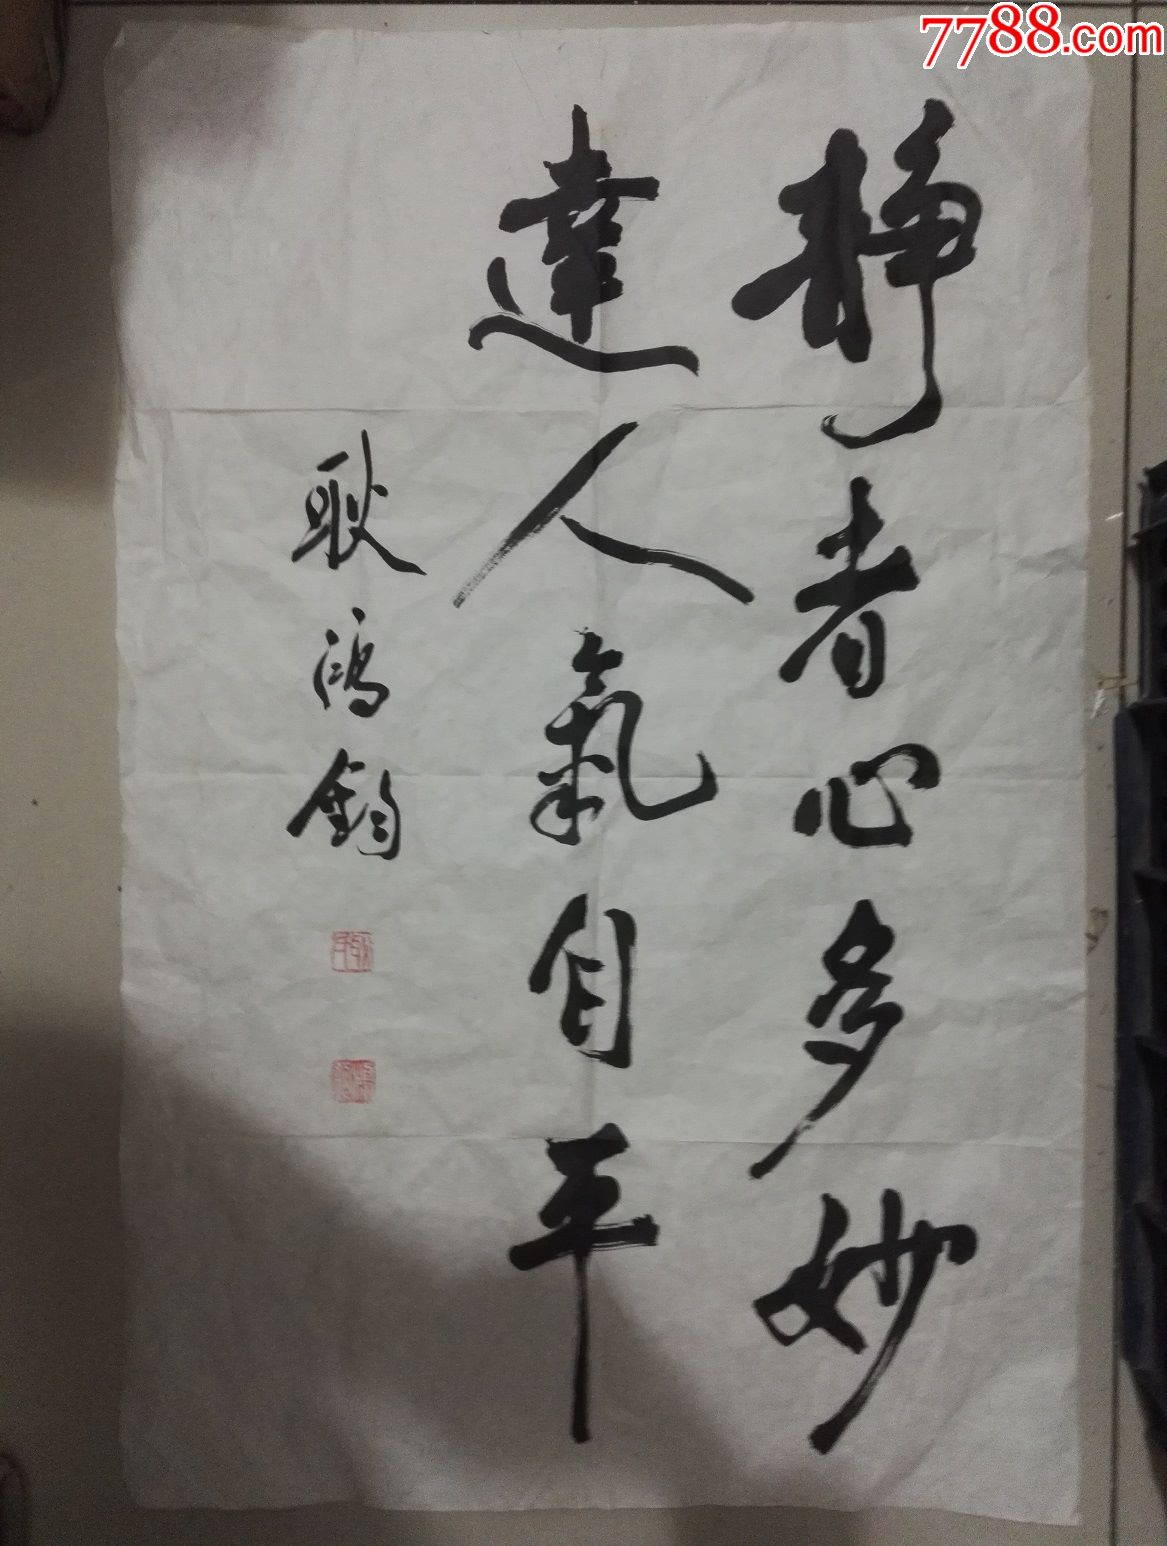 7788.com
静者心多妙
達人氣自平
耿鴻鈞